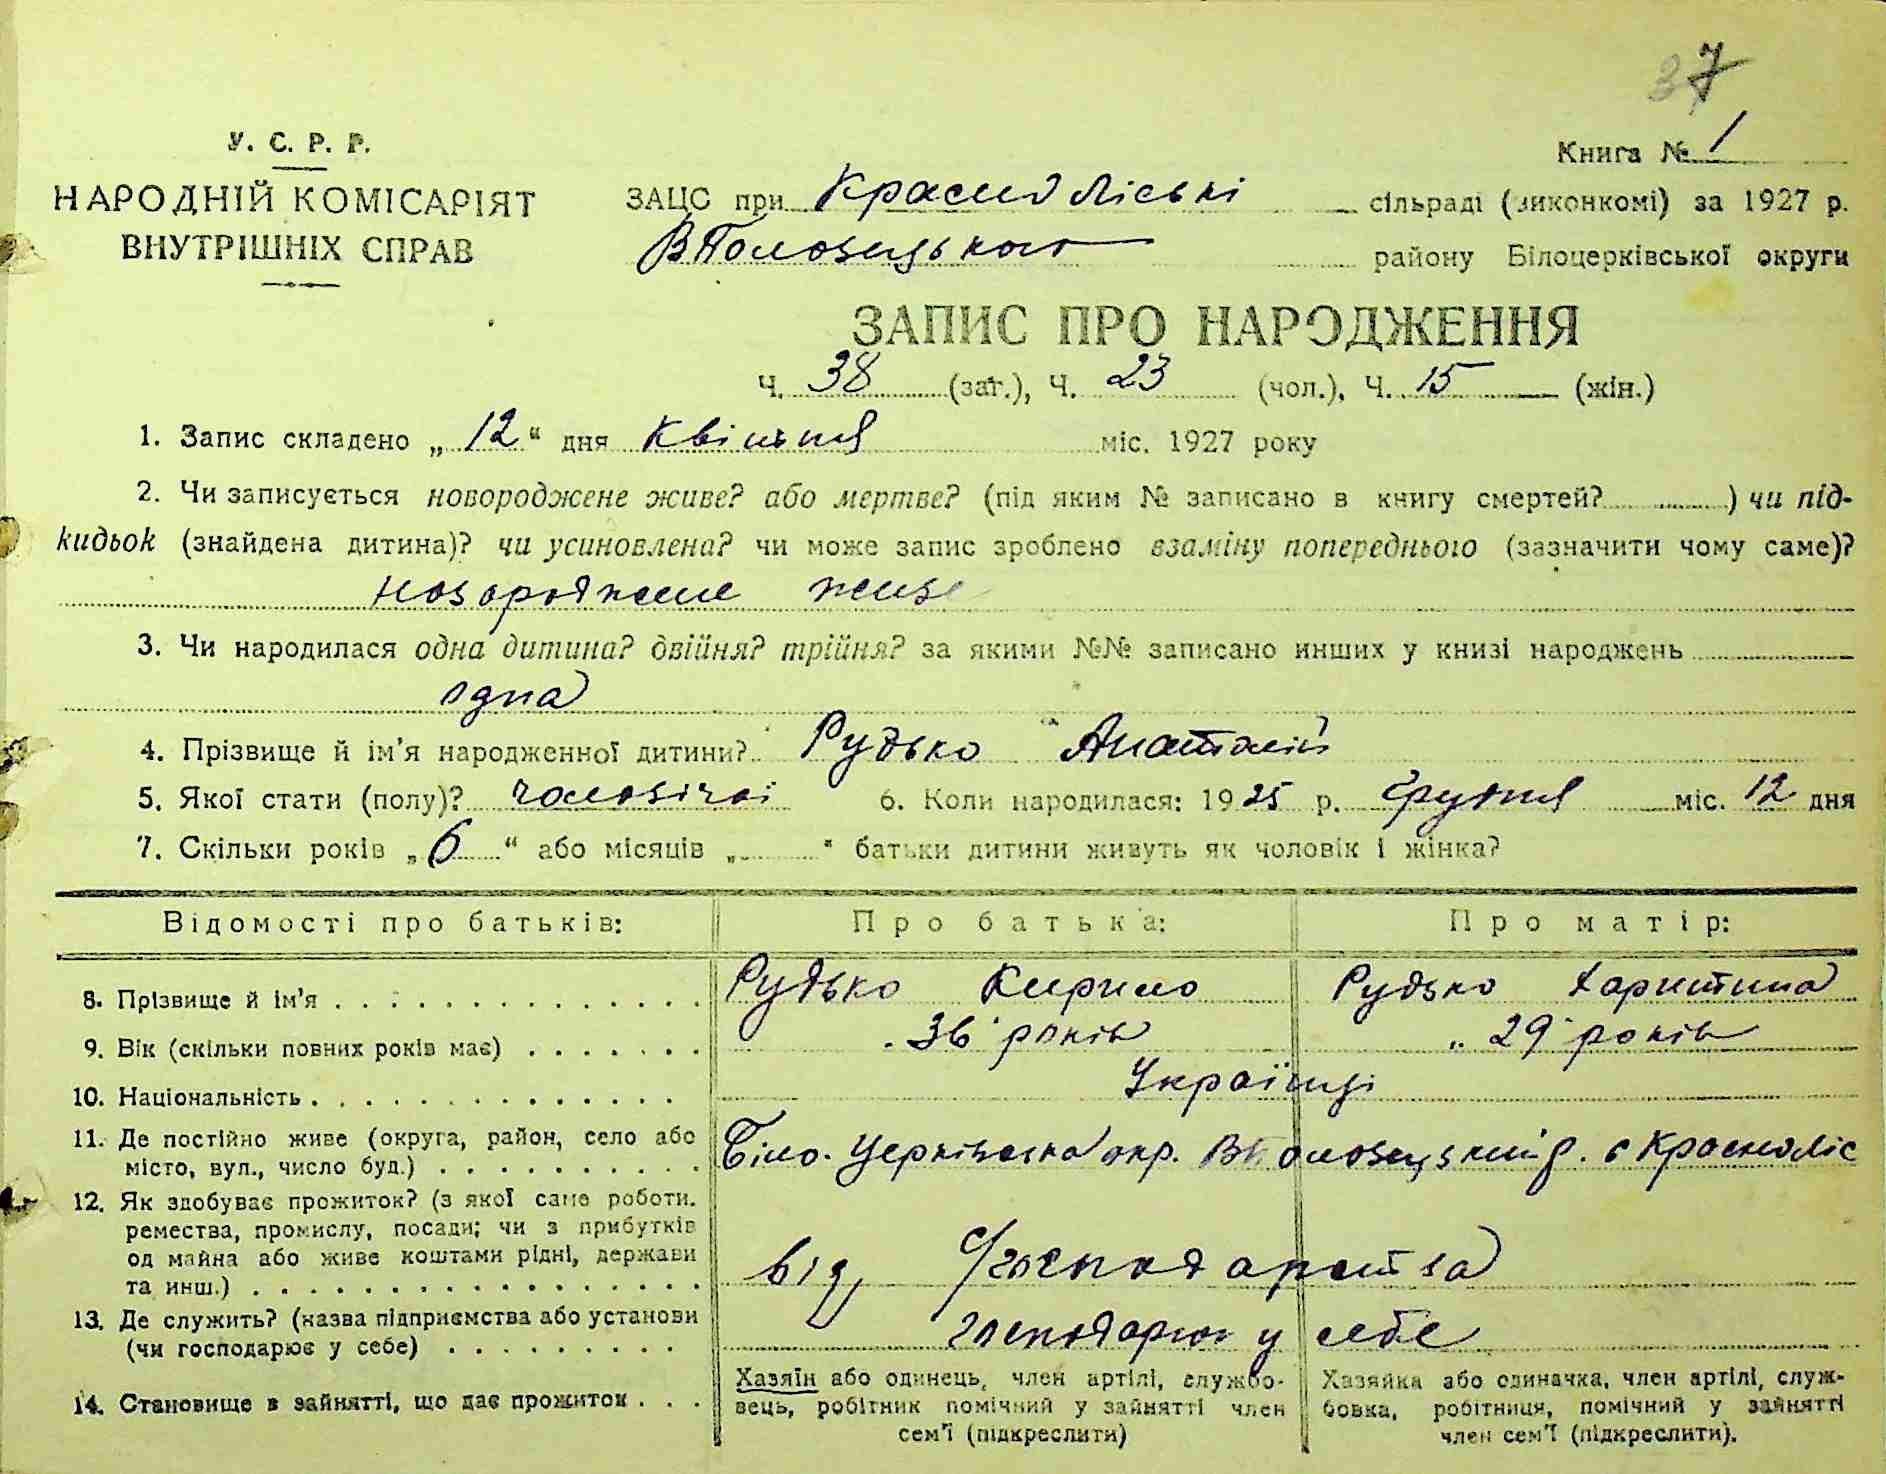 37
У. С. Р. Р.
НАРОДНІЙ КОМІСАРІЯТ
ВНУТРІШНІХ СПРАВ
Книга № 1
ЗАЦС при Краснолісські сільраді (виконкомі) за 1927 р.
ВПоловецького району Білоцерківської округи
ЗАПИС ПРО НАРОДЖЕННЯ
Ч. 38 (заг.), Ч. 23 (чол.), Ч. 15 (жін.)
1. Запис складено „12“ дня Квітня міс. 1927 року
2. Чи записується новороджене живе? або мертве? (під яким № записано в книгу смертей?) чи під-
кидьок (знайдена дитина)? чи усиновлена? чи може запис зроблено взаміну попереднього (зазначити чому саме)?
новорожене живе
3. Чи народилася одна дитина? двійня? трійня? за якими №№ записано инших у книзі народжень
одна
4. Прізвище й ім’я народженної дитини? Рудько Анатолій
5. Якої стати (полу)? чоловічої 6. Коли народилася: 1925 р. Грудня міс. 12 дня
7. Скільки років „6“ або місяців „ “ батьки дитини живуть як чоловік і жінка?
Відомості про батьків: Про батька: Про матір:
8. Прізвище й ім’я Рудько Кирило Рудько Харитина
9. Вік (скільки повних років має) 36 років 29 років
10. Національність Українці
11. Де постійно живе (округа, район, село або
місто, вул., число буд.) Біло-Церківська окр. ВПоловецький р. с Красноліс
12. Як здобуває прожиток? (з якої саме роботи.
ремества, промислу, посади; чи з прибутків
од майна або живе коштами рідні, держави
та инш.) від с/господарства
13. Де служить? (назва підприємства або установи
(чи господарює у себе) господарює у себе
14. Становище в зайнятті, що дає прожиток
Хазяїн або одинець, член артілі, службо-
вець, робітник помічний у зайнятті член
сем’ї (підкреслити)
Хазяйка або одиначка, член артілі, служ-
бовка, робітниця, помічний у зайнятті
член сем’ї (підкреслити).